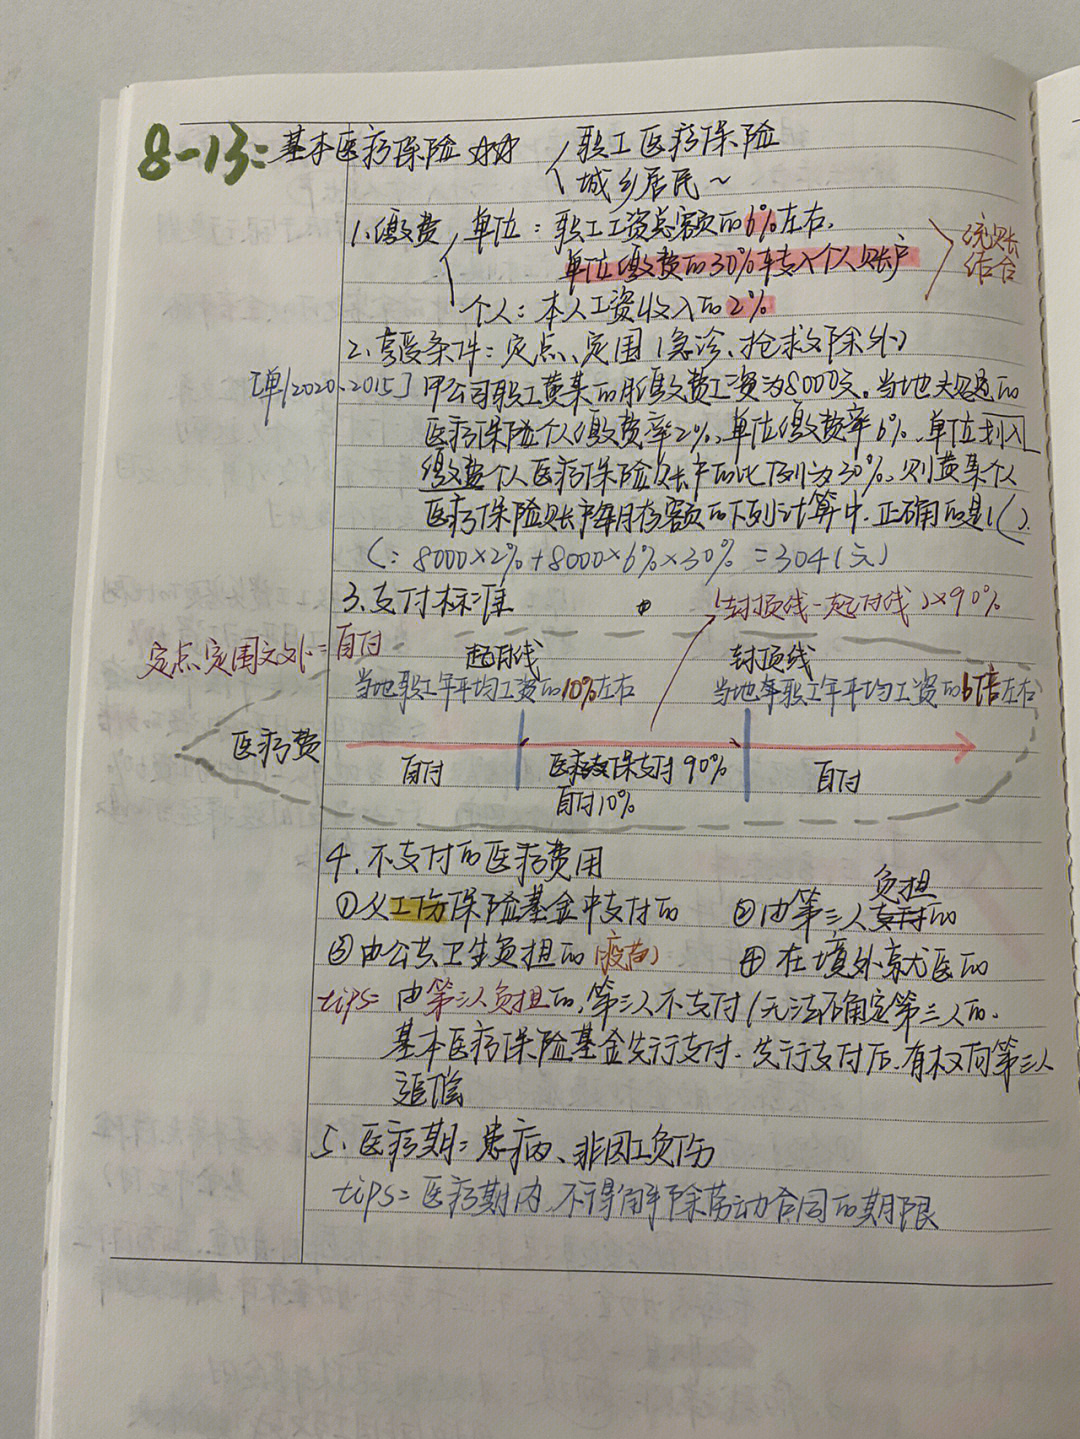 8-13: 基本医疗保险 ☆☆ 职工医疗保险
城乡居民~
1.缴费 单位：职工工资总额的6%左右,
单位缴费的30%转入个人账户
统账结合
个人：本人工资收入的2%
2.享受条件：定点、定围(急诊、抢救除外)
[单/2020、2015] 甲公司职工黄某的月缴费工资为8000元。当地规定的
医疗保险个人缴费率2%,单位缴费率6%,单位划入
缴费个人医疗保险账户的比例为30%,则黄某个人
医疗保险账户每月存额的下列计算中,正确的是( ).
(: 8000×2%+8000×6%×30% =304(元)
3.支付标准
(封顶线-起付线)×90%
定点定围之外=自付
起付线 封顶线
当地职工年平均工资的10%左右 当地年职工年平均工资的6倍左右
医疗费
自付 医保支付90% 自付
自付10%
4.不支付的医疗费用
①从工伤保险基金中支付的 ②由第三人负担的
③由公共卫生负担的(疫苗) ④在境外就医的
tips= 由第三人负担的,第三人不支付/无法确定第三人的,
基本医疗保险基金先行支付.先行支付后,有权向第三人
追偿
5.医疗期：患病、非因工负伤
tips=医疗期内,不得解除劳动合同的期限